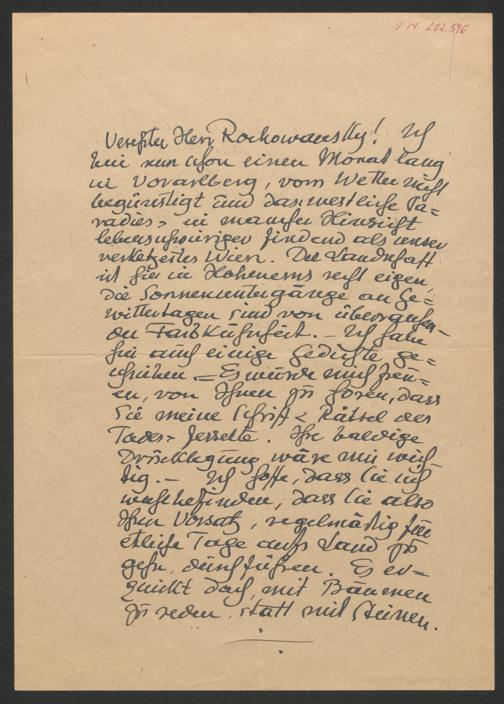 I N. 202.546
Verehrter Herr Rochowanski! Ich
bin nun schon einen Monat lang
in Vorarlberg, vom Wetter nicht
begünstigt und das westliche Pa=
radies in mancher Hinsicht
lebensschwieriger findend als unser
verketzertes Wien. Die Landschaft
ist hier in Hohenems recht eigen,
die Sonnenuntergänge an Ge=
wittertagen sind von überraschen=
der Farbkühnheit. – Ich habe
hier auch einige Gedichte ge=
schrieben. – Es würde mich freu=
en, von Ihnen zu hören, dass
Sie meine Schrift < Rätsel des
Todes > fesselte. Ihre baldige
Drucklegung wäre mir wich=
tig. – Ich hoffe, dass Sie sich
wohlbefinden, dass Sie also
Ihren Vorsatz, regelmäßig für
etliche Tage aufs Land zu
gehn, durchführen. Es er=
quickt doch, mit Bäumen
zu reden, statt mit Steinen.